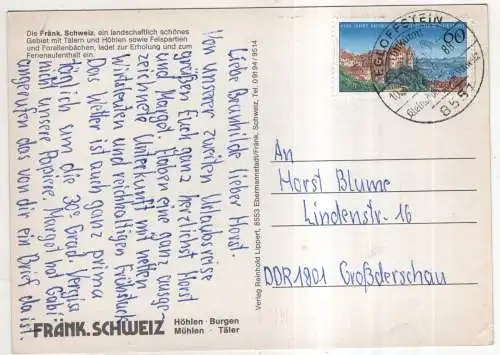 Die Fränk. Schweiz, ein landschaftlich schönes
Gebiet mit Tälern und Höhlen sowie Felspartien
und Forellenbächen, ladet zur Erholung und zum
Ferienaufenthalt ein.
Liebe Brunhilde lieber Horst.
Von unserer zweiten Urlaubsreise
grüßen Euch ganz herzlichst Horst
und Margot. Haben eine ganz ausge-
zeichnete Unterkunft mit netten
Wirtsleuten und reichhaltigen Frühstück
Das Wetter ist auch ganz prima
täglich um die 30° Grad. Vergiss
nicht unsere Papiere. Margot hat Gabi
angerufen das von dir ein Brief da ist.
FRÄNK.SCHWEIZ
Höhlen · Burgen
Mühlen · Täler
Verlag Reinhold Lippert, 8553 Ebermannstadt/Fränk. Schweiz, Tel. 09194/9514
EGLOFFSTEIN
8551
90
An
Horst Blume
Lindenstr. 16
DDR 1801 Großderschau